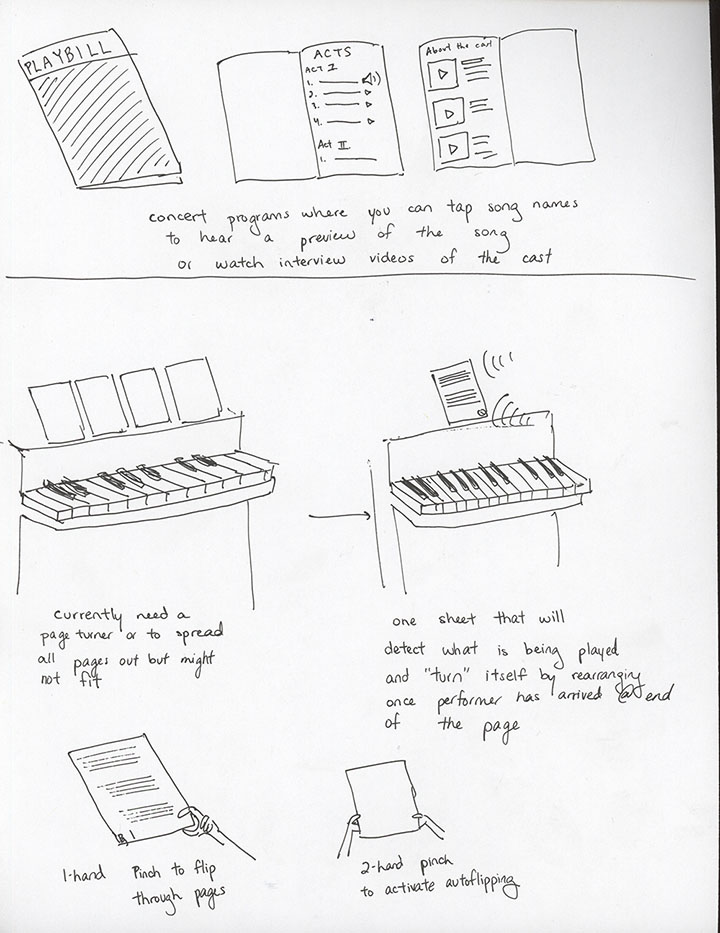 PLAYBILL
ACTS
ACT I
1.
2.
3.
4.
Act II
1.
About the cast
concert programs where you can tap song names
to hear a preview of the song
or watch interview videos of the cast
currently need a
page turner or to spread
all pages out but might
not fit
one sheet that will
detect what is being played
and "turn" itself by rearranging
once performer has arrived @ end
of the page
1-hand Pinch to flip
through pages
2-hand pinch
to activate autoflipping